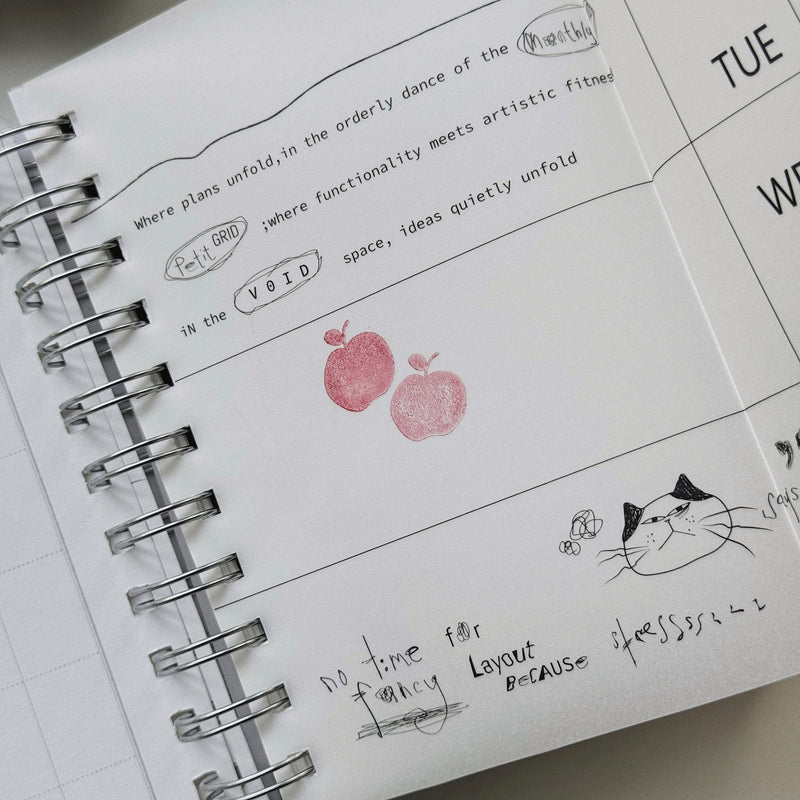 Where plans unfold,in the orderly dance of the monthly
Petit GRID ;where functionality meets artistic fitnes
iN the VOID space, ideas quietly unfold
TUE
WE
says
no time for
fancy Layout
BECAUSE stressssss